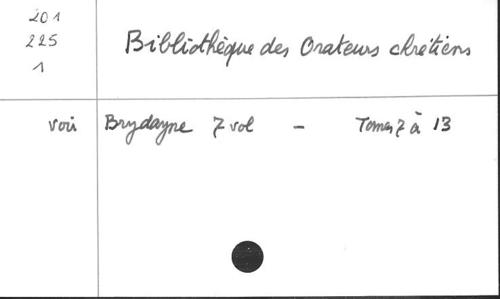 201
225
1
Bibliothèque des Orateurs chrétiens
voir Brydayne 7 vol - Tomes 7 à 13